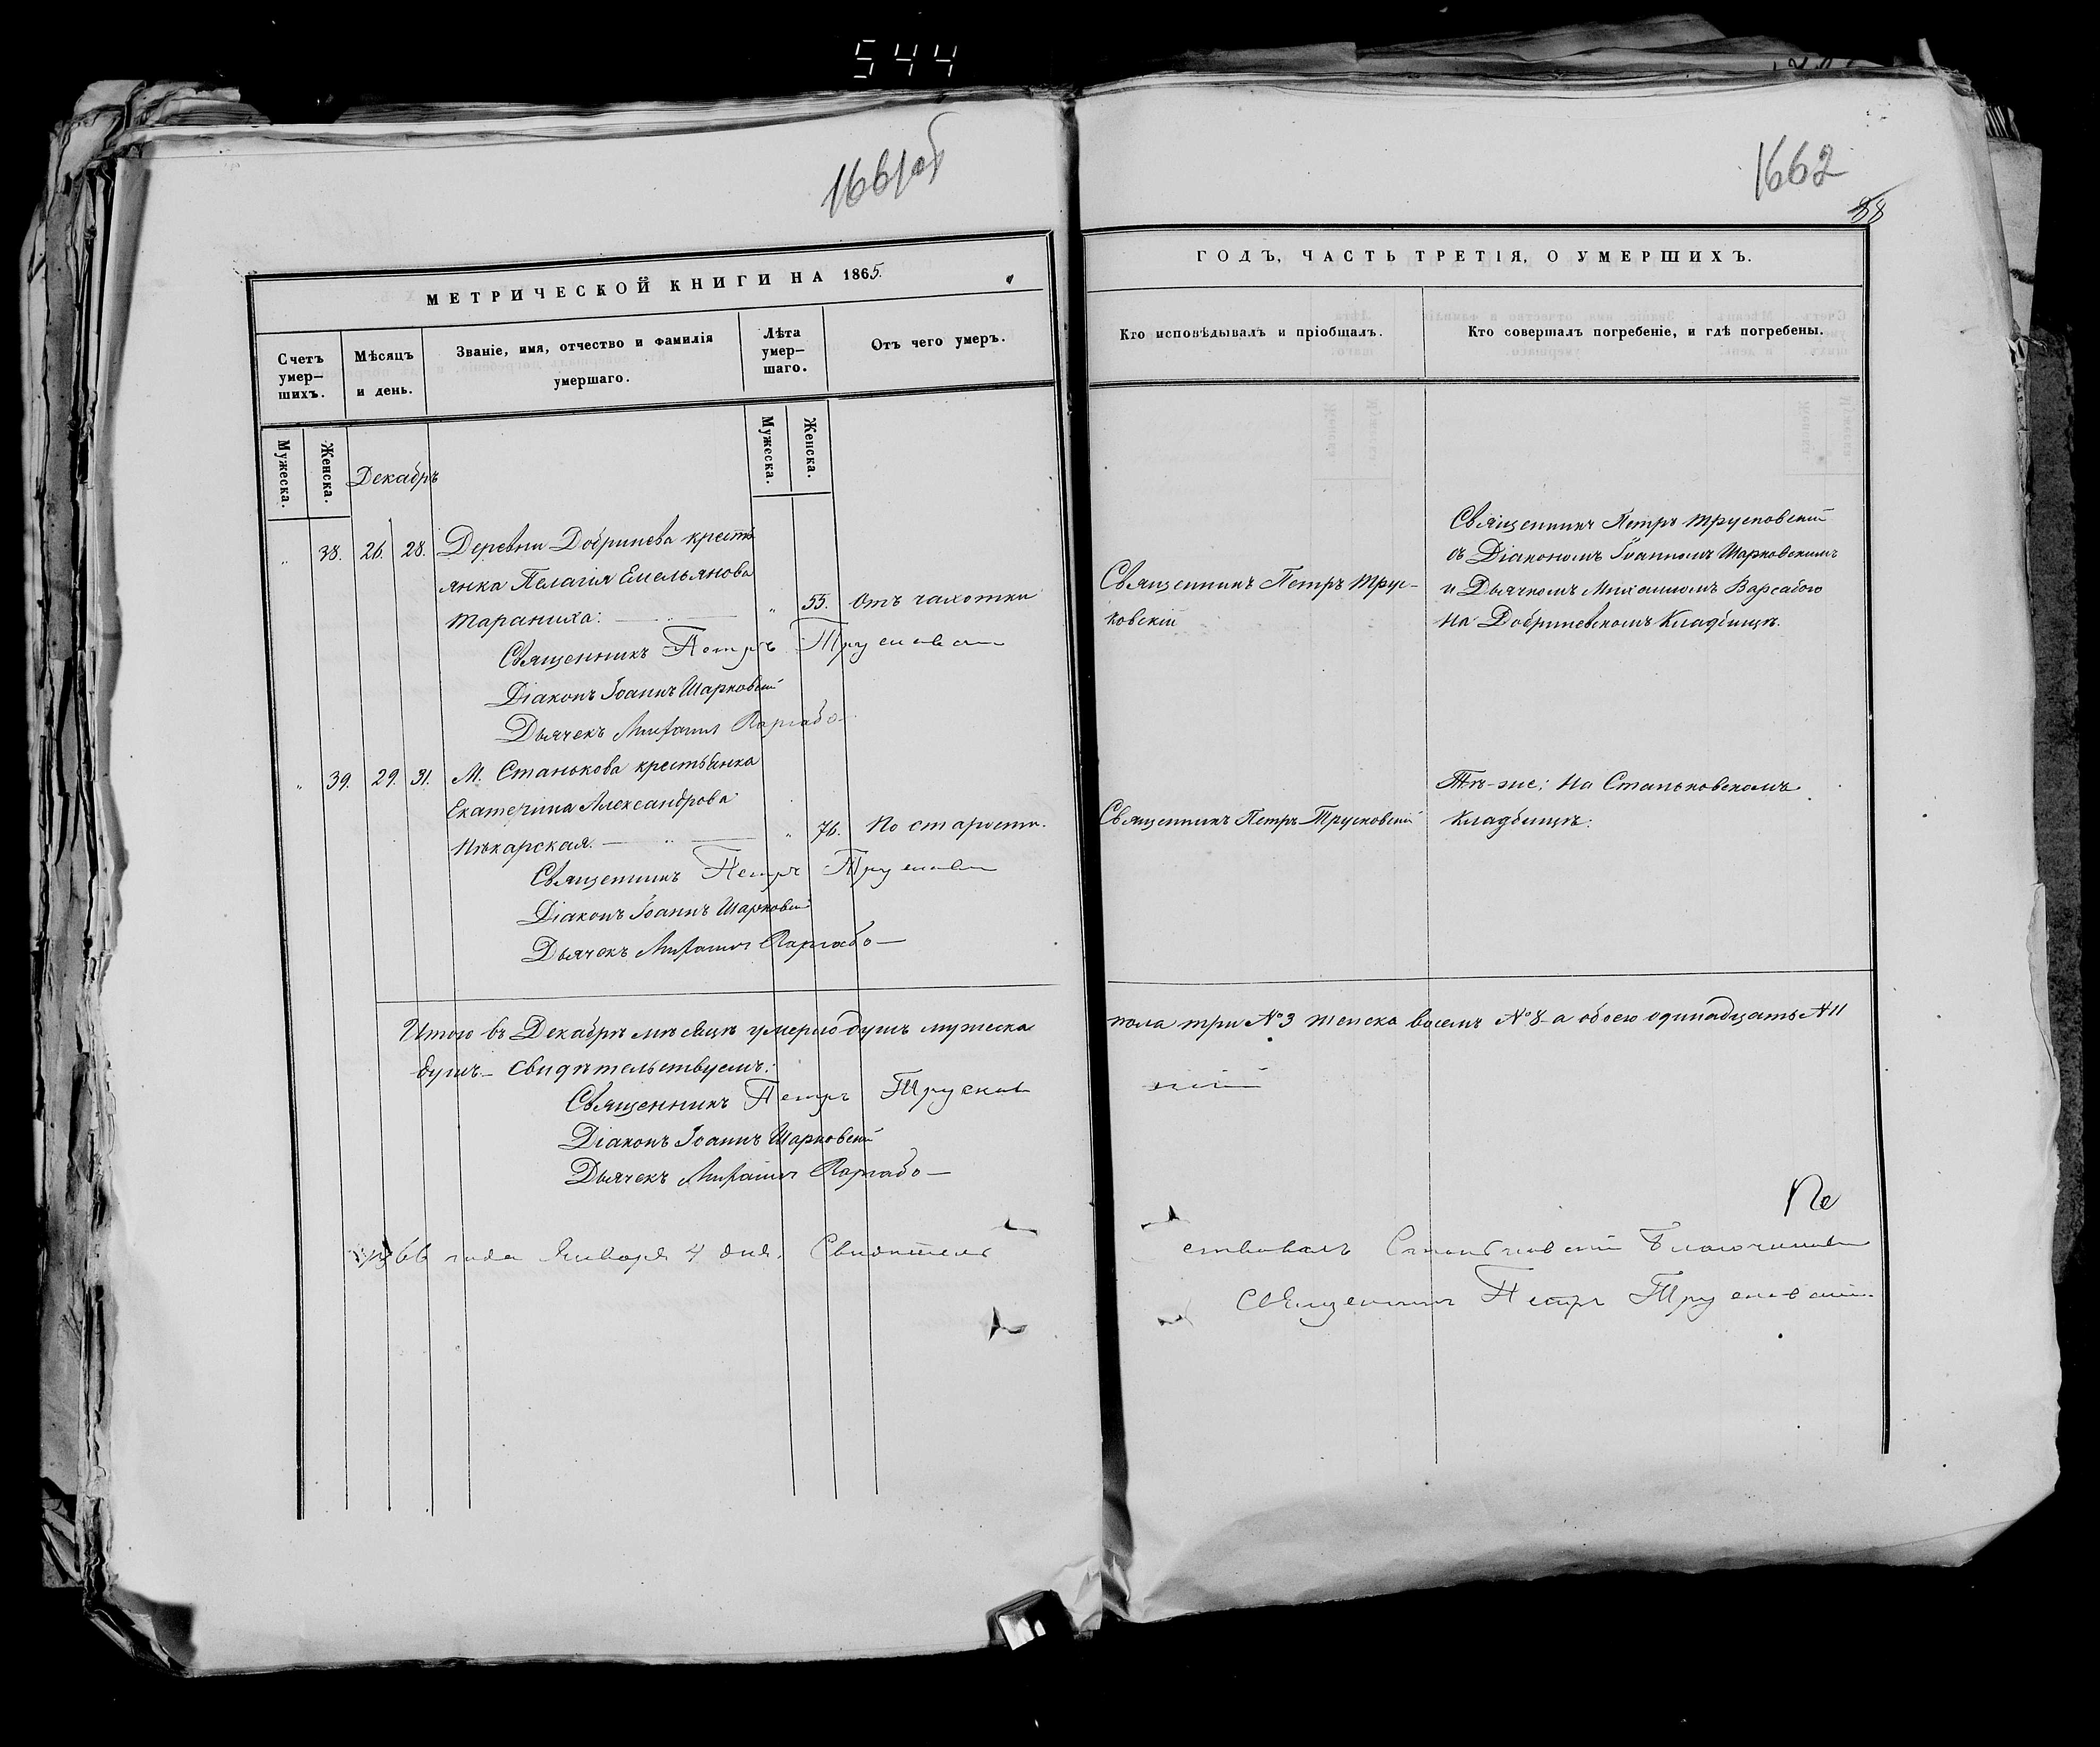 544
1661об
1662
88
МЕТРИЧЕСКОЙ КНИГИ НА 1865.
ГОДЪ, ЧАСТЬ ТРЕТІЯ, О УМЕРШИХЪ.
Счетъ умер-шихъ.
Мѣсяцъ и день.
Званіе, имя, отчество и фамилія умершаго.
Лѣта умер-шаго.
Отъ чего умеръ.
Кто исповѣдывалъ и пріобщалъ.
Кто совершалъ погребеніе, и гдѣ погребены.
Мужеска. Женска.
Мужеска. Женска.
Декабрь
38. 26. 28. Деревни Добринева кресть
янка Пелагія Емельянова
Тараниха: 55. Отъ чахотки
Священникъ Петръ Трус-
ковскій
Священникъ Петръ Трусковскій
съ Діакономъ Іоанномъ Шарковскимъ
и Дьячкомъ Михаиломъ Варсабою
на Добриневскомъ Кладбищѣ.
Священникъ Петръ Трусковскій
Діаконъ Іоаннъ Шарковскій
Дьячекъ Михаилъ Варсабо
39. 29. 31. М. Станькова крестьянка
Екатерина Александрова
Пѣкарская. 76. По старости.
Священникъ Петръ Трусковскій
Тѣ-же; на Станьковскомъ
кладбищѣ:
Священникъ Петръ Трусковскій
Діаконъ Іоаннъ Шарковскій
Дьячекъ Михаилъ Варсабо
Итого въ Декабрѣ мѣсяцѣ умерло душъ мужеска пола три № 3 женска восемь № 8 а обоего одинадцать № 11
душъ – свидѣтельствуемъ:
Священникъ Петръ Трусковскій
Діаконъ Іоаннъ Шарковскій
Дьячекъ Михаилъ Варсабо
1866 года Января 4 дня. Свидѣтельствовалъ Станьковскій Благочинный
Священникъ Петръ Трусковскій.